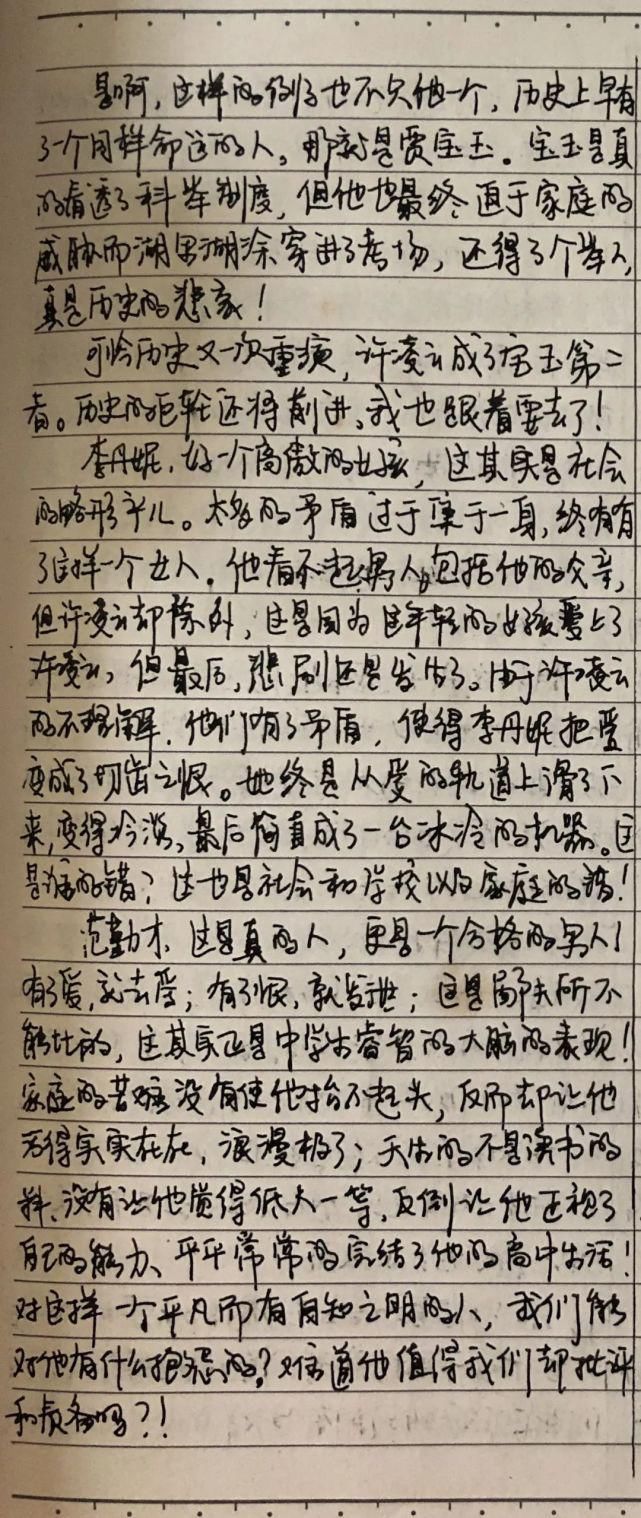 是啊，这样的例子也不欠他一个，历史上早有
了一个同样命运的人。那就是贾宝玉。宝玉是真
的看透了科举制度，但他也最终迫于家庭的
威胁而湖里湖涂穿进了考场，还得了个举人，
真是历史的悲哀！
可怜历史又一次重演，许凌云成了宝玉第二
者。历史的巨轮还将前进。我也跟着要去了！
李丹妮，好一个高傲的女孩，这其实是社会
的畸形产儿。太多的矛盾过于集于一身，终有有
了这样一个女人。他看不起男人，包括他的父亲，
但许凌云却除外，这是因为这年轻的女孩爱上了
许凌云，但最后，悲剧还是发生了。由于许凌云
的不理解，他们有了矛盾，使得李丹妮把爱
变成了切齿之恨。她终是从爱的轨道上滑了下
来，变得冷淡，最后简直成了一台冰冷的机器。这
是谁的错？这也是社会和学校以及家庭的错！
范勤才，这是真的人，更是一个合格的男人！
有了爱，就去爱；有了恨，就发泄；这是鄙夫所不
能比的，这其实正是中学生睿智的大脑的表现！
家庭的苦难没有使他抬不起头，反而却让他
活得实实在在，浪漫极了；天生的不是读书的
料，没有让他觉得低人一等，反倒让他正视了
自己的能力、平平常常的完结了他的高中生活！
对这样一个平凡而有自知之明的人，我们能
对他有什么抱怨的？难道他值得我们却批评
和责备吗？！